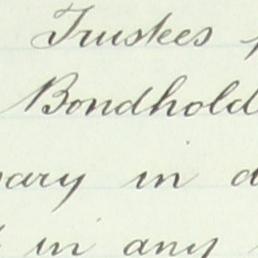 Trustees
Bondhold
in
in any